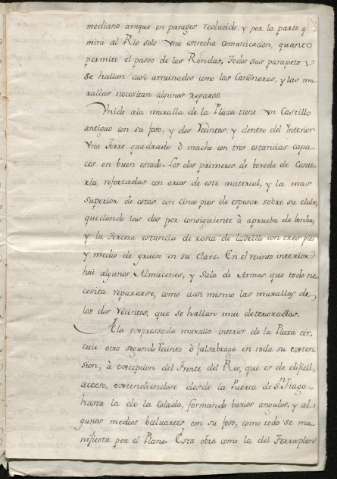 mediano aunque en parages reducido, y por la parte q
mira al Rio solo una estrecha comunicacion, quanto
permite el paso de las Rondas, todos sus parapetos
se hallan casi arruinados como las Cañoneras, y las mu
rallas necesitan algunos reparos.
Unido a la muralla de la Plaza tiene un Castillo
antiguo con su foso, y dos Recintos, y dentro del Interior
una Torre quadrada ó macho con tres estancias capa
ces en buen estado. Las dos primeras de boveda de
reforzadas con arcos de este material, y la mas
superior de estas con cinco pies de espesor sobre su clave,
quedando las dos por consiguiente á prueba de bomba,
y la tercera estancia di con tres pies
y medio de grueso en su Clave. En el recinto interior
hai algunos Almacenes, y Sala de Armas que todo ne
cesita repararse, como assi mismo las murallas de
los dos Recintos, que se hallan mui deterioradas.
A la expressada muralla interior de la Plaza cir
cuie otro segundo Recinto ó falsabraga en toda su exten
sion, á excepcion del frente del Rio, que es de dificil
acceso, extendiendose desde la Puerta de Sn. Tiago
hasta la de la Calada, formando varios angulos, y al
gunos medios baluartes con su foso, como todo se ma
nifiesta por el Plano. Esta obra como la del Terraplen